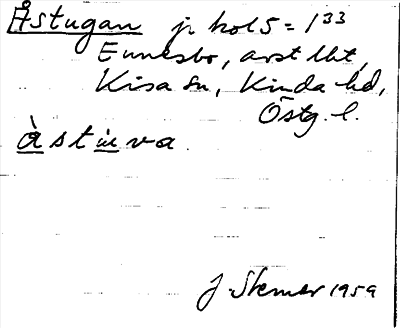 Åstugan jr kol 5 = 1³³
Ennesbo, avst lht,
Kisa sn, Kinda hd,
Östg. l.
àstùva
J. Stemer 1959